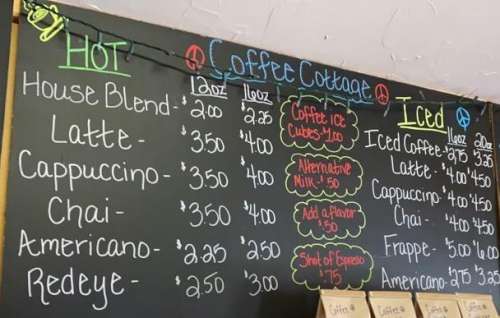 Coffee Cottage
HOT
12oz 16oz
House Blend - $2.00 $2.25
Latte - $3.50 $4.00
Cappuccino - $3.50 $4.00
Chai - $3.50 $4.00
Americano - $2.25 $2.50
Redeye - $2.50 $3.00
Coffee ice
Cubes - 1.00
Alternative
Milk - $.50
Add a flavor
$.50
Shot of Espresso
$.75
Iced
16oz 20oz
Iced Coffee - $2.75 $3.25
Latte - $4.00 $4.50
Cappuccino - $4.00 $4.50
Chai - $4.00 $4.50
Frappe - $5.00 $6.00
Americano - $2.75 $3.25
Coffee
Coffee
Coffee
Coffee